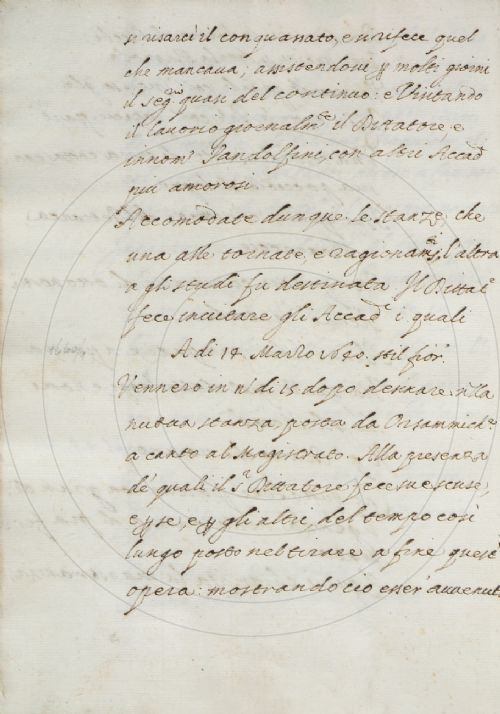 si risarcì il conquassato, e si rifece quel
che mancava; assistendovi p molti giorni
il seg.rio quasi del continuo: e Visitando
il lavorio giornalm.te il Dittatore e
innom. Pandolfini, con altri Accad.
più amorosi.
Accomodate dunque le stanze che
una alle tornate, e ragionam.ti, l'altra
a gli studi fu destinata. Il Ditta.e
fece invitare gli Accad.i i quali
A di 14 Marzo 1640. stil fior.
Vennero in n.o di 15 dopo desinare nella
nuova stanza posta da Orsammich.e
a canto al Magistrato. Alla presenza
de' quali il s.r Dittatore fece sue scuse,
e p se, e p gli altri, del tempo così
lungo posto nel tirare a fine quest'
opera: mostrando ciò esser' avvenut